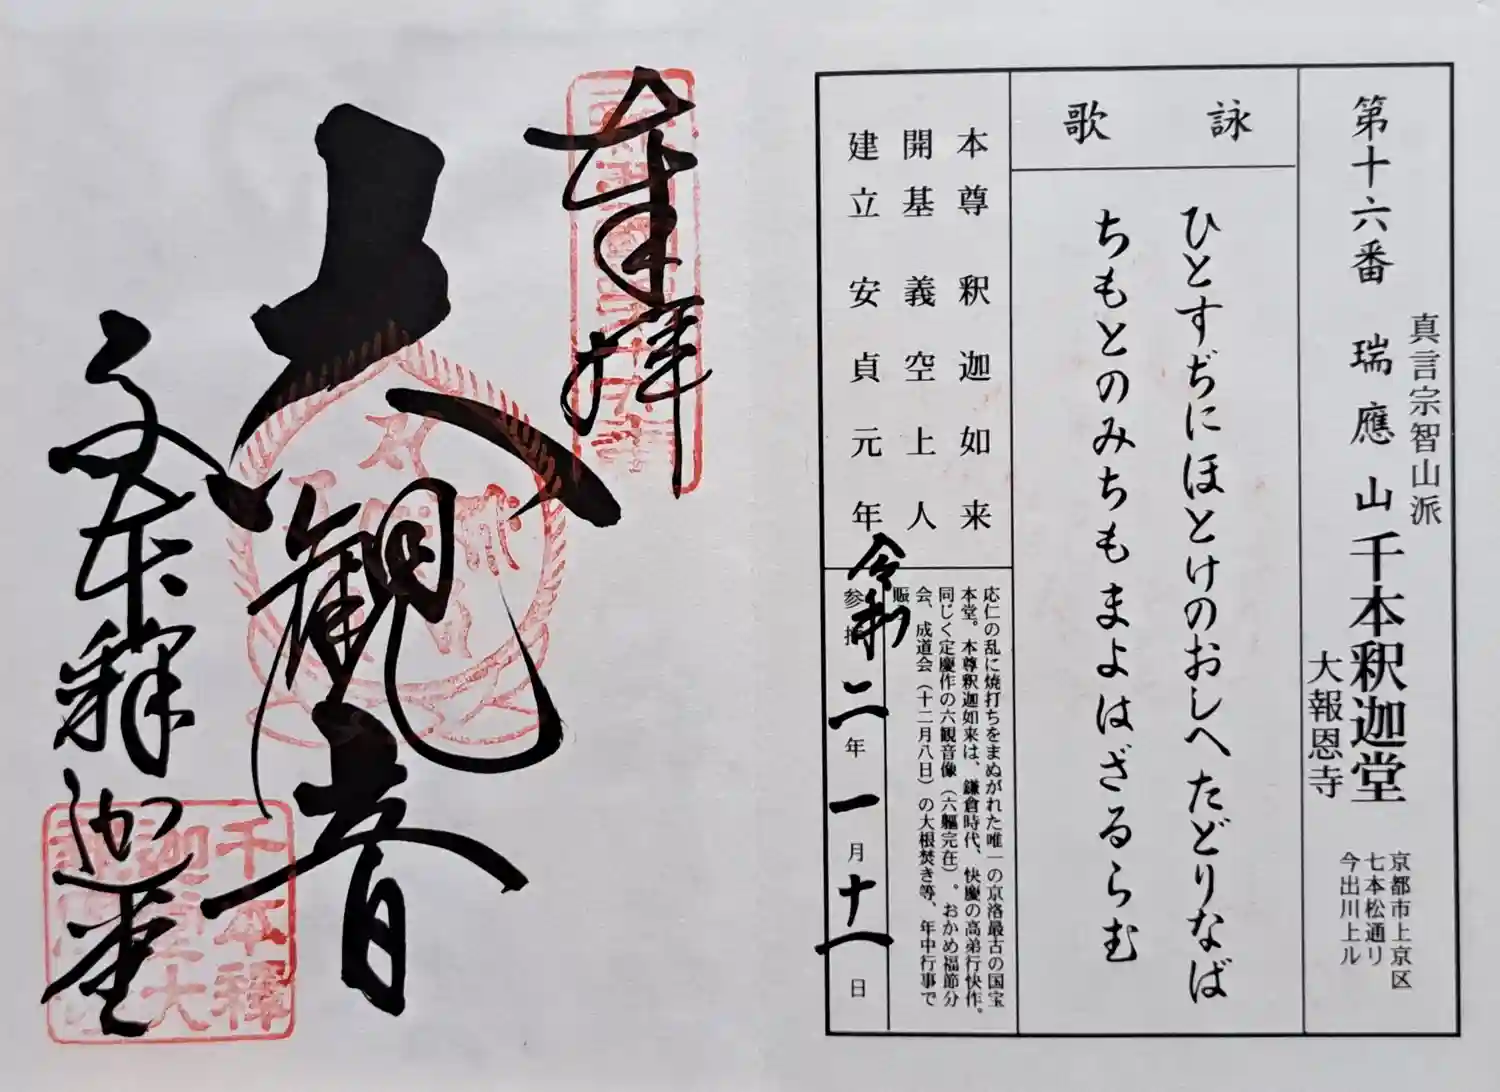 真言宗智山派
第十六番 瑞應山千本釈迦堂
大報恩寺
京都市上京区
七本松通リ
今出川上ル
詠歌
ひとすぢにほとけのおしへたどりなば
ちもとのみちもまよはざるらむ
本尊 釈迦如来
開基 義空上人
建立 安貞元年
応仁の乱に焼打ちをまぬがれた唯一の京洛最古の国宝
本堂。本尊釈迦如来は、鎌倉時代、快慶の高弟行快作。
同じく定慶作の六観音像(六軀完在)。おかめ福節分
会、成道会(十二月八日)の大根焚き等、年中行事で
賑
参拝 令和二年一月十一日
奉拝
六観音
千本釋迦堂
千本釋
迦堂大
報恩寺